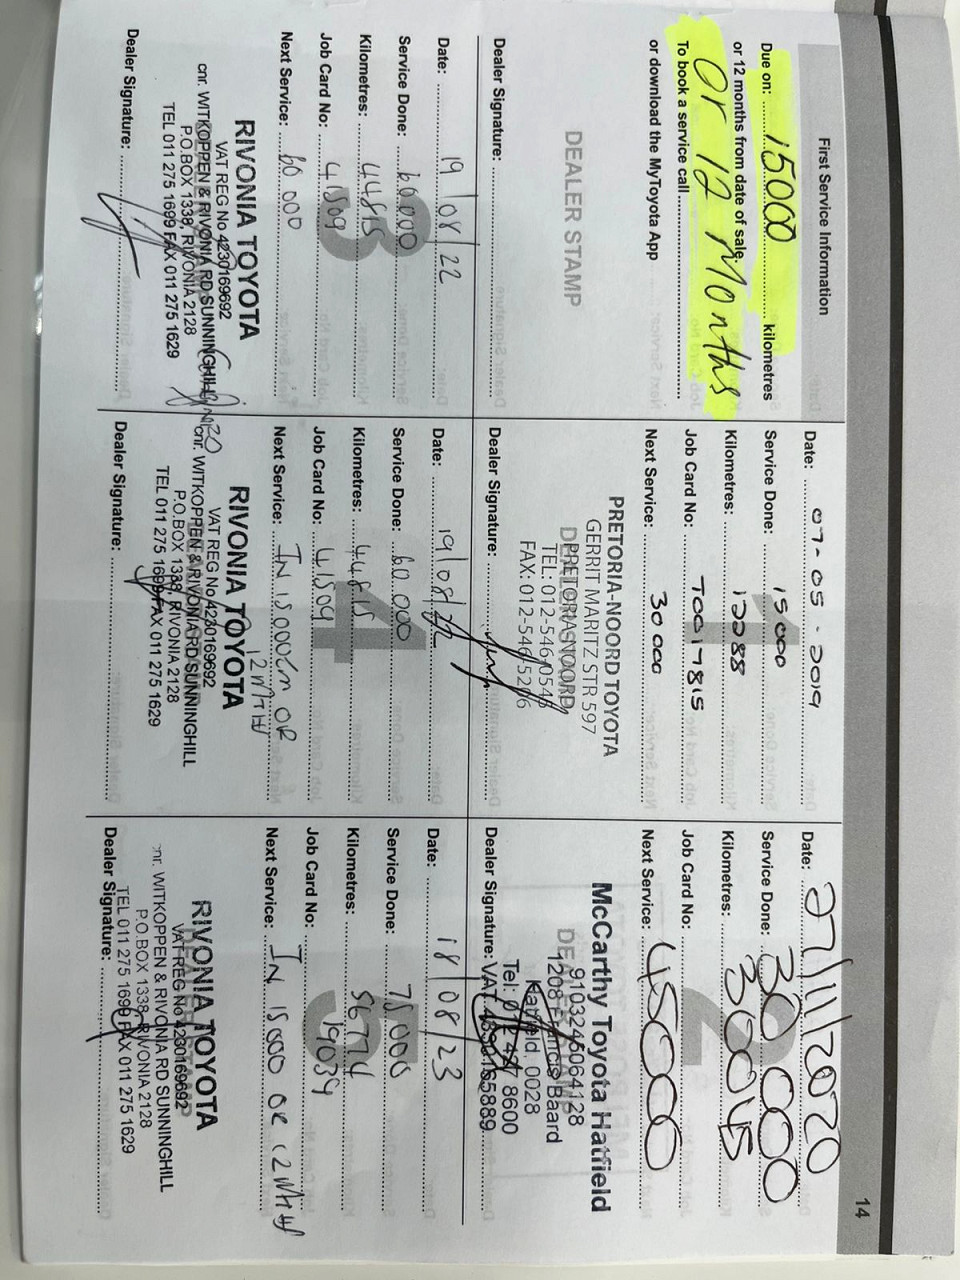 14
First Service Information
Due on: 15000 kilometres
or 12 months from date of sale.
or 12 Months
To book a service call
or download the MyToyota App
DEALER STAMP
Dealer Signature:
Date: 07-05-2019
Service Done: 15000
Kilometres: 12288
Job Card No: T0017815
Next Service: 30 000
PRETORIA-NOORD TOYOTA
GERRIT MARITZ STR 597
PRETORIA NOORD
TEL: 012-546 0545
FAX: 012-546 5206
Dealer Signature:
Date: 27/11/2020
Service Done: 30 000
Kilometres: 30045
Job Card No:
Next Service: 45000
McCarthy Toyota Hatfield
9103245064128
1208 Francis Baard
Hatfield, 0028
8600
Dealer Signature:
Date: 19/08/22
Service Done: 60 000
Kilometres: 44815
Job Card No: 41509
Next Service: 60 000
RIVONIA TOYOTA
VAT REG No 4230169692
cnr. WITKOPPEN & RIVONIA RD SUNNINGHILL
P.O.BOX 1338, RIVONIA 2128
TEL 011 275 1699 FAX 011 275 1629
Dealer Signature:
Date: 19/08/22
Service Done: 60.000
Kilometres: 44815
Job Card No: 41509
Next Service: IN 15000km OR
12 MTH
RIVONIA TOYOTA
VAT REG No 4230169692
cnr. WITKOPPEN & RIVONIA RD SUNNINGHILL
P.O.BOX 1338, RIVONIA 2128
TEL 011 275 1699 FAX 011 275 1629
Dealer Signature:
Date: 18/08/23
Service Done: 75000
Kilometres: 56774
Job Card No: 49039
Next Service: IN 15000 OR 12 MTH
RIVONIA TOYOTA
VAT REG No 4230169692
cnr. WITKOPPEN & RIVONIA RD SUNNINGHILL
P.O.BOX 1338, RIVONIA 2128
TEL 011 275 1699 FAX 011 275 1629
Dealer Signature: